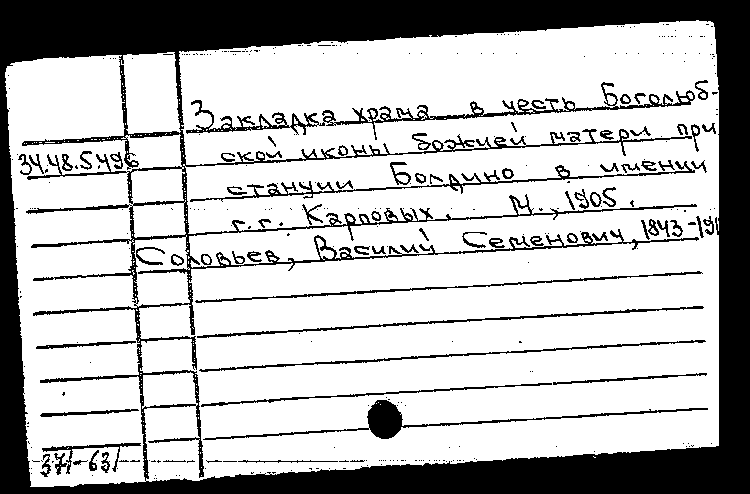 Закладка храма в честь Боголюб-
34.48.5.496 ской иконы божией матери при
станции Болдино в имении
г.г. Карповых. М., 1905.
Соловьев, Василий Семенович, 1843-191
371-631